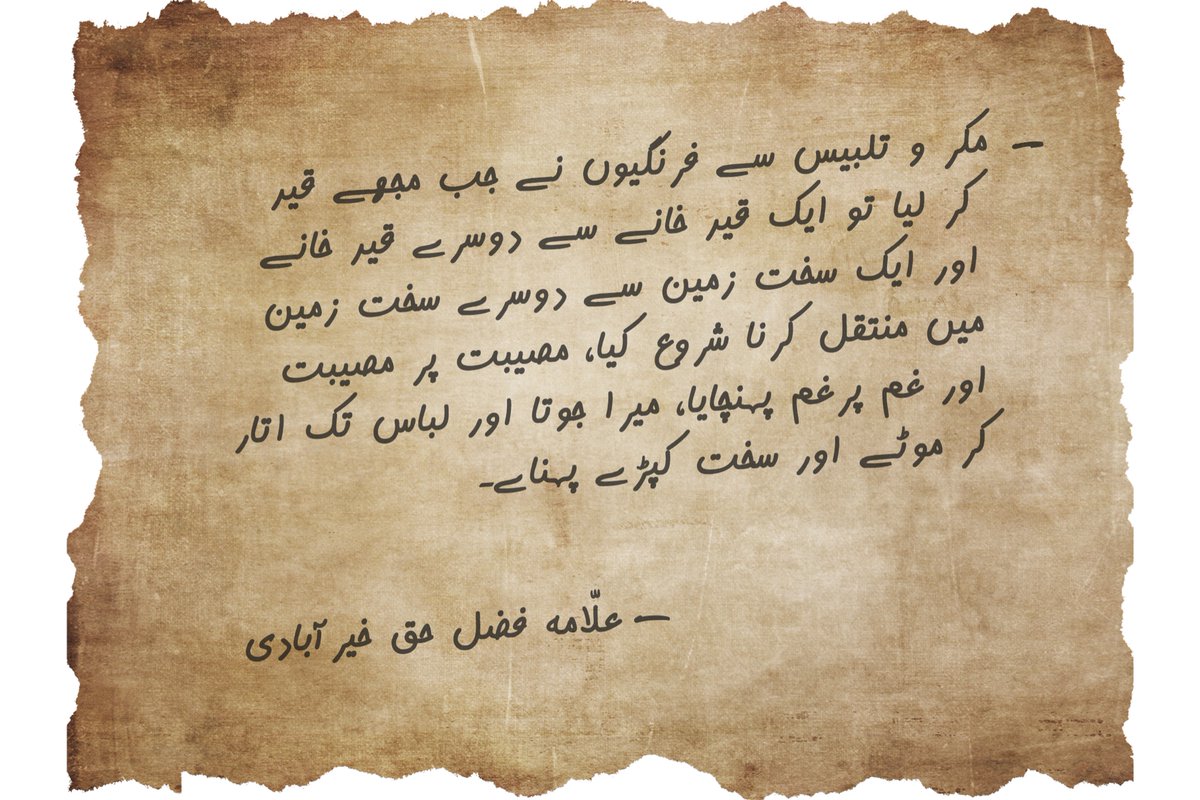 — مکر و تلبیس سے فرنگیوں نے جب مجھے قید
کر لیا تو ایک قید خانے سے دوسرے قید خانے
اور ایک سخت زمین سے دوسرے سخت زمین
میں منتقل کرنا شروع کیا، مصیبت پر مصیبت
اور غم پر غم پہنچایا، میرا جوتا اور لباس تک اتار
کر موٹے اور سخت کپڑے پہناے۔
— علّامہ فضل حق خیر آبادی